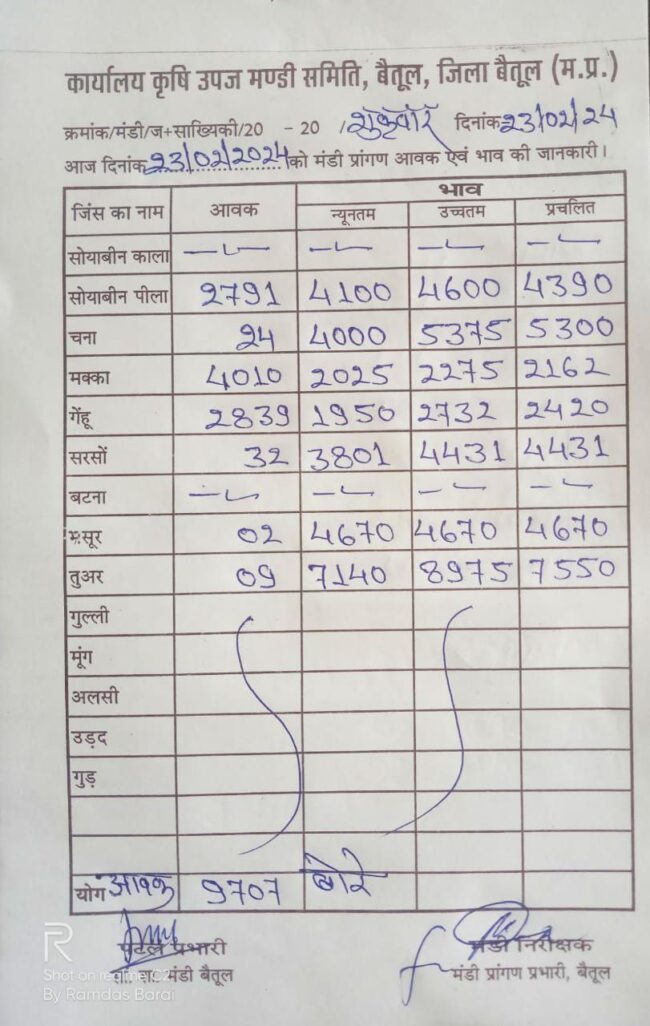 कार्यालय कृषि उपज मण्डी समिति, बैतूल, जिला बैतूल (म.प्र.)
क्रमांक/मंडी/ज+साख्यिकी/20 - 20 /शुक्रवार दिनांक 23/02/24
आज दिनांक 23/02/2024 को मंडी प्रांगण आवक एवं भाव की जानकारी।
जिंस का नाम आवक भाव
न्यूनतम उच्चतम प्रचलित
सोयाबीन काला
सोयाबीन पीला 2791 4100 4600 4390
चना 24 4000 5375 5300
मक्का 4010 2025 2275 2162
गेंहू 2839 1950 2732 2420
सरसों 32 3801 4431 4431
बटना
मसूर 02 4670 4670 4670
तुअर 09 7140 8975 7550
गुल्ली
मूंग
अलसी
उड़द
गुड़
योग आवक 9707 बोरे
प्रभारी मंडी निरीक्षक
मंडी बैतूल मंडी प्रांगण प्रभारी, बैतूल
R
Shot on realme C2
By Ramdas Barai